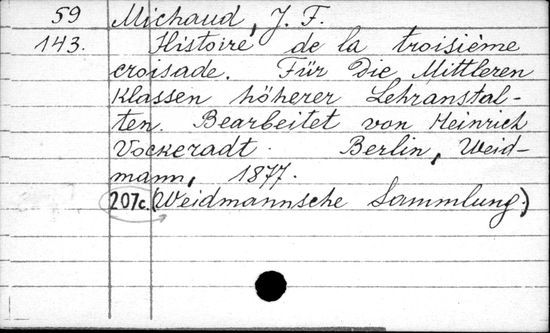 59 Michaud, J. F.
143. Histoire de la troisième
croisade. Für Die Mittleren
Klassen höherer Lehranstal-
ten. Bearbeitet von Heinrich
Vockeradt. Berlin, Weid-
mann, 1877.
207c. (Weidmannsche Sammlung.)